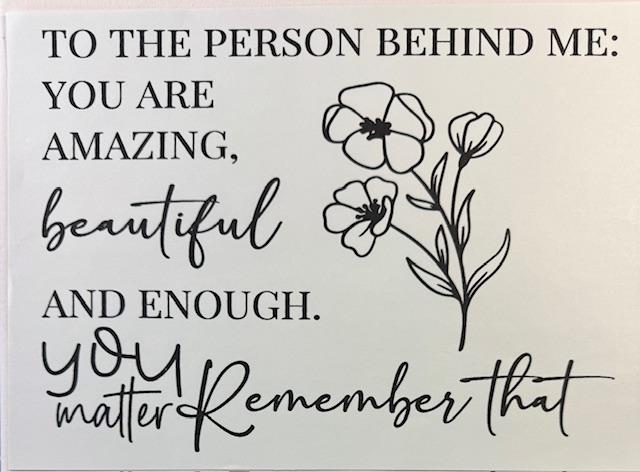 TO THE PERSON BEHIND ME:
YOU ARE
AMAZING,
beautiful
AND ENOUGH.
you
matter Remember that